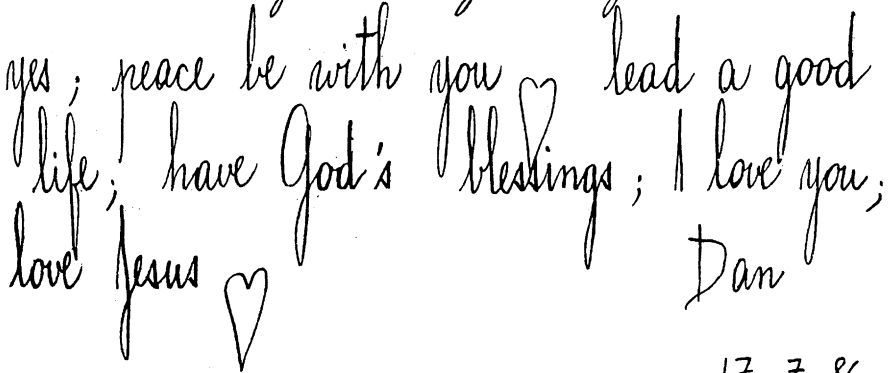 yes; peace be with you ♡ lead a good
life; have God's blessings; I love you;
love Jesus ♡ Dan
17 7 86